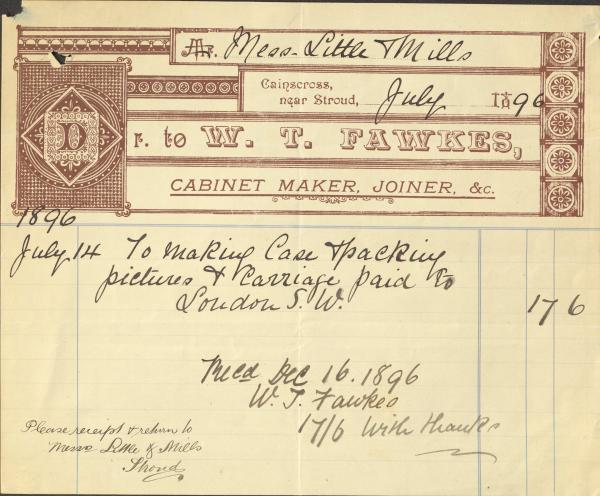 Mr. Mess. Little & Mills
Cainscross,
near Stroud, July 1896
Dr. to W. T. FAWKES,
CABINET MAKER, JOINER, &c.
1896
July 14 To making Case & packing
pictures & Carriage paid to
London S. W. 17 6
Recd Dec 16. 1896
W. T. Fawkes
17/6 With thanks
Please receipt & return to
Messrs Little & Mills
Stroud